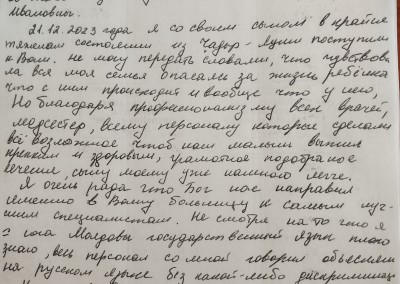 Ивановиг.
21.12.2023 года я со своим сыном в крайне
тяжелом состоянии из Чадыр-Лунги поступили
к Вам. не могу передать словами, что чувствова
ла вся моя семья опасаясь за жизнь ребёнка
что с ним происходит и вообще что у него,
Но благодаря профессионализму всех врачей,
медсестер, всему персоналу которые сделали
всё возможное чтоб наш малыш выжил
крепким и здоровым, грамотное подобранное
лечение, сыну моему уже намного легче.
Я очень рада что Бог нас направил
именно в Вашу больницу к самым луч-
шим специалистам. Не смотря на то что я
с юга Молдавы государственный язык плохо
знаю, весь персонал со мной говорил объясняли
на русском языке без какой-либо дискриминац